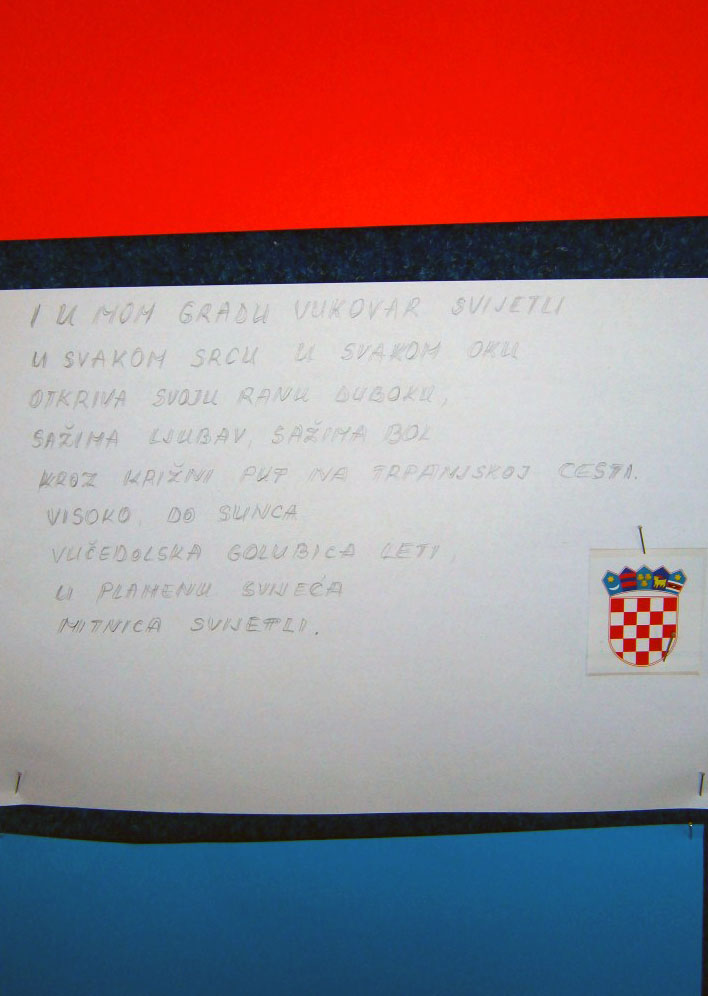 I U MOM GRADU VUKOVAR SVIJETLI
U SVAKOM SRCU U SVAKOM OKU
OTKRIVA SVOJU RANU DUBOKU,
SAŽIMA LJUBAV, SAŽIMA BOL
KROZ KRIŽNI PUT NA TRPANJSKOJ CESTI.
VISOKO, DO SUNCA
VUČEDOLSKA GOLUBICA LETI,
U PLAMENU SVIJEĆA
MITNICA SVIJETLI.